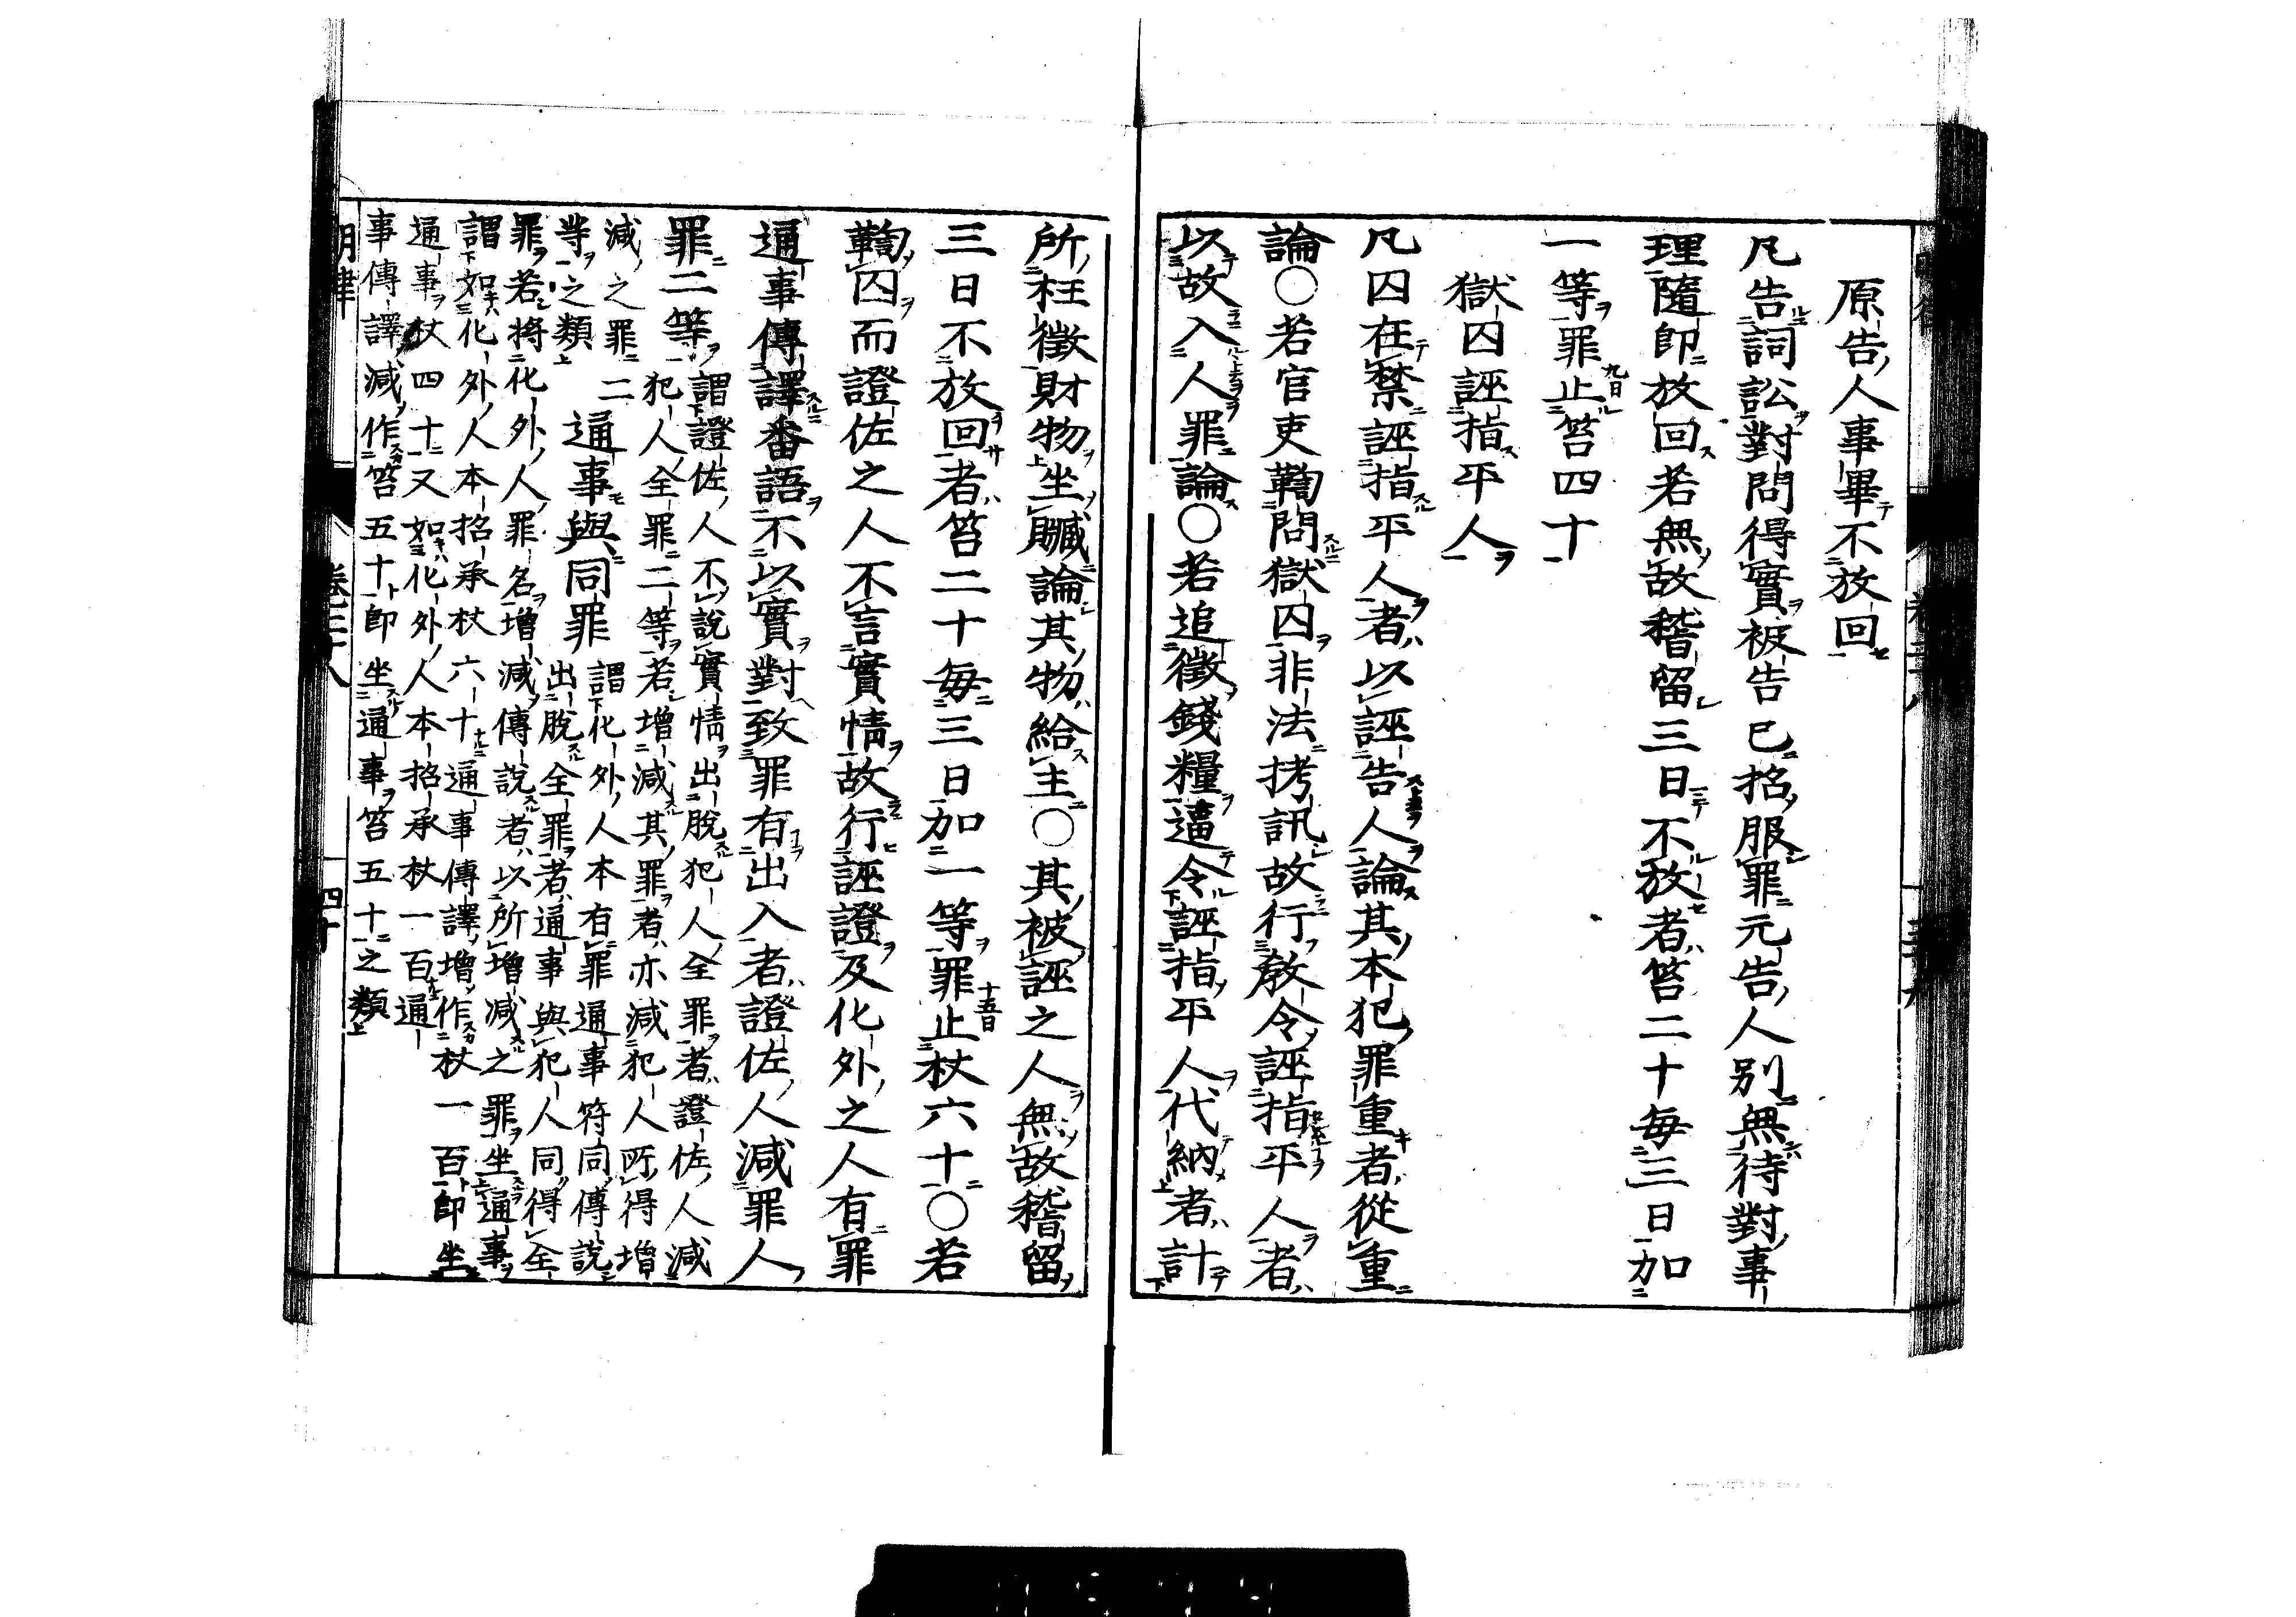 原告人事畢不放回
凡告詞訟對問得實被告已招服罪元告人別無待對事
理隨卽放回若無故稽留三日不放者笞二十每三日加
一等罪止笞四十
獄囚誣指平人
凡囚在禁誣指平人者以誣告人論其本犯罪重者從重
論○若官吏鞫問獄囚非法拷訊故行敎令誣指平人者
以故入人罪論○若追徵錢糧逼令誣指平人代納者計
所枉徵財物坐贓論其物給主○其被誣之人無故稽留
三日不放回者笞二十每三日加一等罪止杖六十○若
鞫囚而證佐之人不言實情故行誣證及化外之人有罪
通事傳譯番語不以實對致罪有出入者證佐人減罪人
罪二等
謂證佐人不說實情出脫犯人全罪者證佐人減
犯人全罪二等若增減其罪者亦減犯人所得增
減之罪二
等之類
通事與同罪
謂化外人本有罪通事符同傳說
出脫全罪者通事與犯人同得全
罪若將化外人罪名增減傳說者以所增減之罪坐通事
謂如化外人本招承杖六十通事傳譯增作杖一百卽坐
通事杖四十又如化外人本招承杖一百通
事傳譯減作笞五十卽坐通事笞五十之類
明律
卷二十八
四十